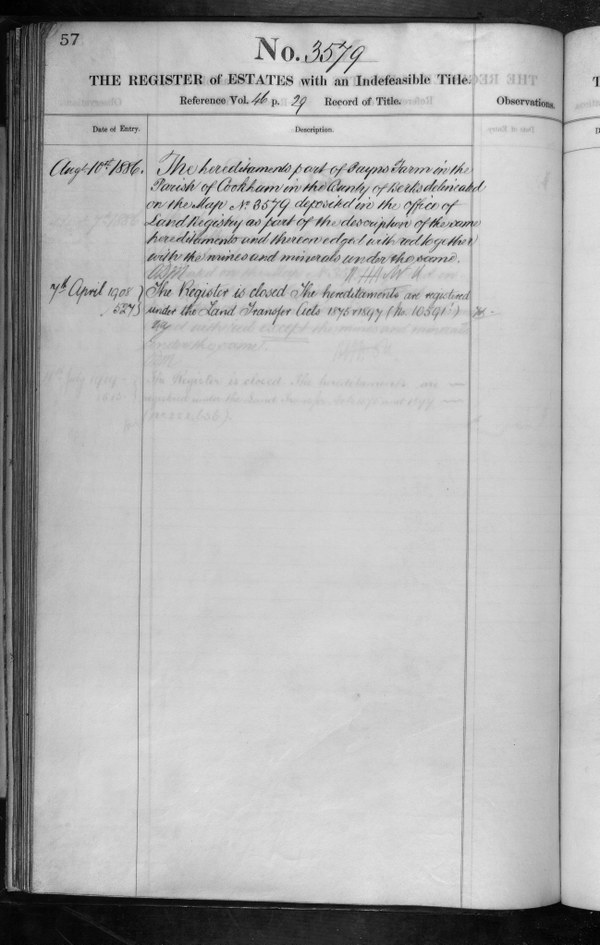 57
No. 3579
THE REGISTER of ESTATES with an Indefeasible Title.
Reference Vol. 46 p. 29 Record of Title.
Observations.
Date of Entry.
Description.
Augt 10th 1886.
The hereditaments part of Payns Farm in the
Parish of Cookham in the County of Berks delineated
on the Map No 3579 deposited in the office of
Land Registry as part of the description of the same
hereditaments and thereon edged with red together
with the mines and minerals under the same.
7th April 1908
527
The Register is closed The hereditaments are registered
under the Land Transfer Acts 1875 & 1897 (No 10591)